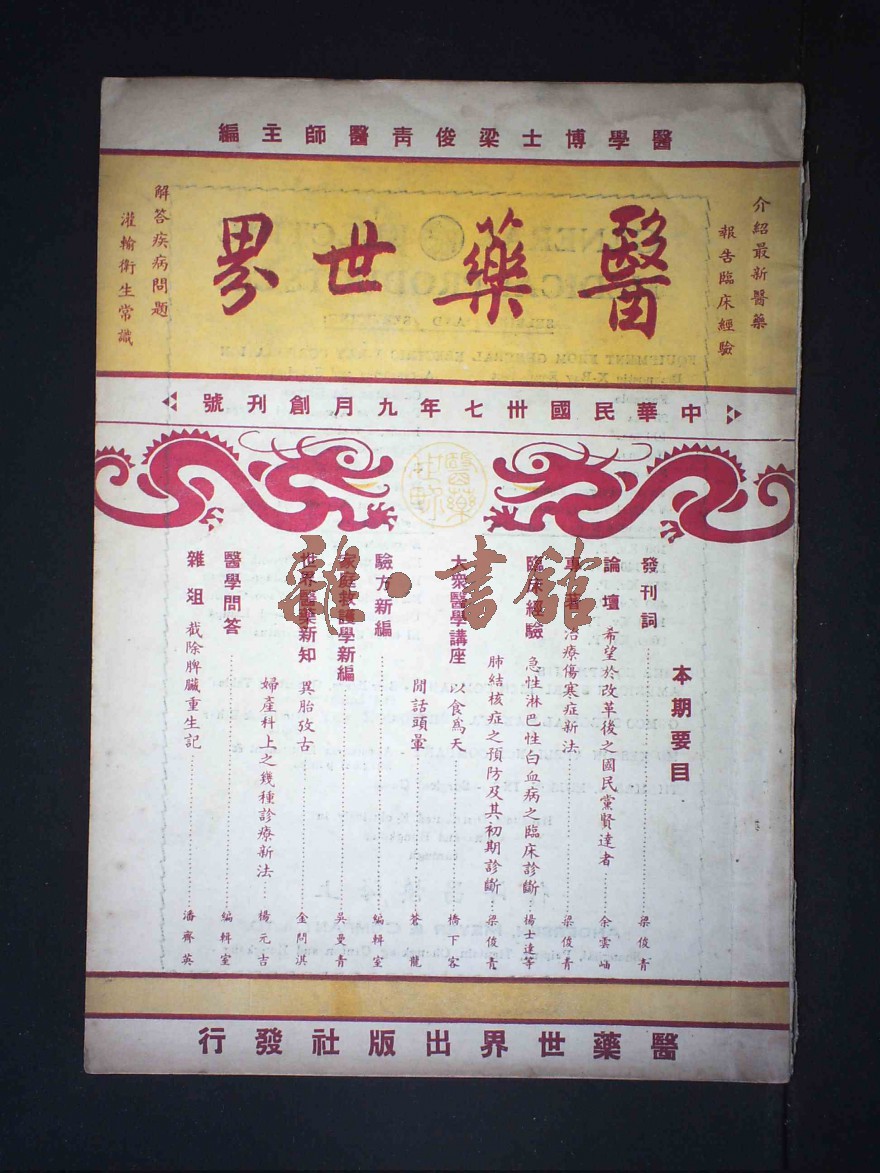 醫學博士梁俊靑醫師主編
介紹最新醫藥
報告臨床經驗
醫藥世界
解答疾病問題
灌輸衛生常識
中華民國卅七年九月創刊號
本期要目
發刊詞 梁俊青
論壇 希望於改革後之國民黨賢達者 余雲岫
專著 治療傷寒症新法 梁俊青
臨床經驗 急性淋巴性白血病之臨床診斷 楊士達等
肺結核症之預防及其初期診斷 梁俊青
大衆醫學講座 以食爲天 橋下客
閒話頭暈 蒼龍
驗方新編 編輯室
家庭救護學新編 吳曼青
世界醫藥新知 異胎攷古 金問淇
婦產科上之幾種診療新法 楊元吉
醫學問答 編輯室
雜俎 截除脾臟重生記 潘齊英
醫藥世界出版社發行
龍·書館